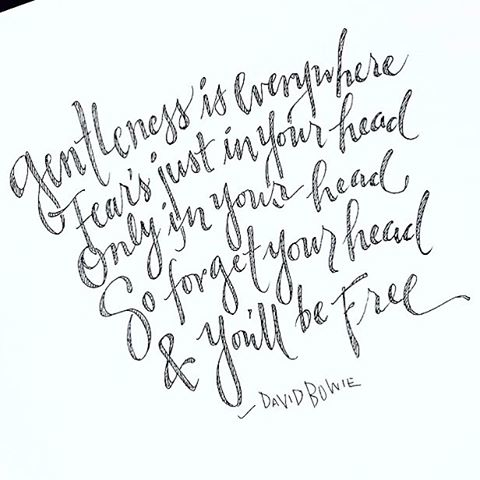 Gentleness is everywhere
Fear's just in your head
Only in your head
So forget your head
& you'll be Free
DAVID BOWIE